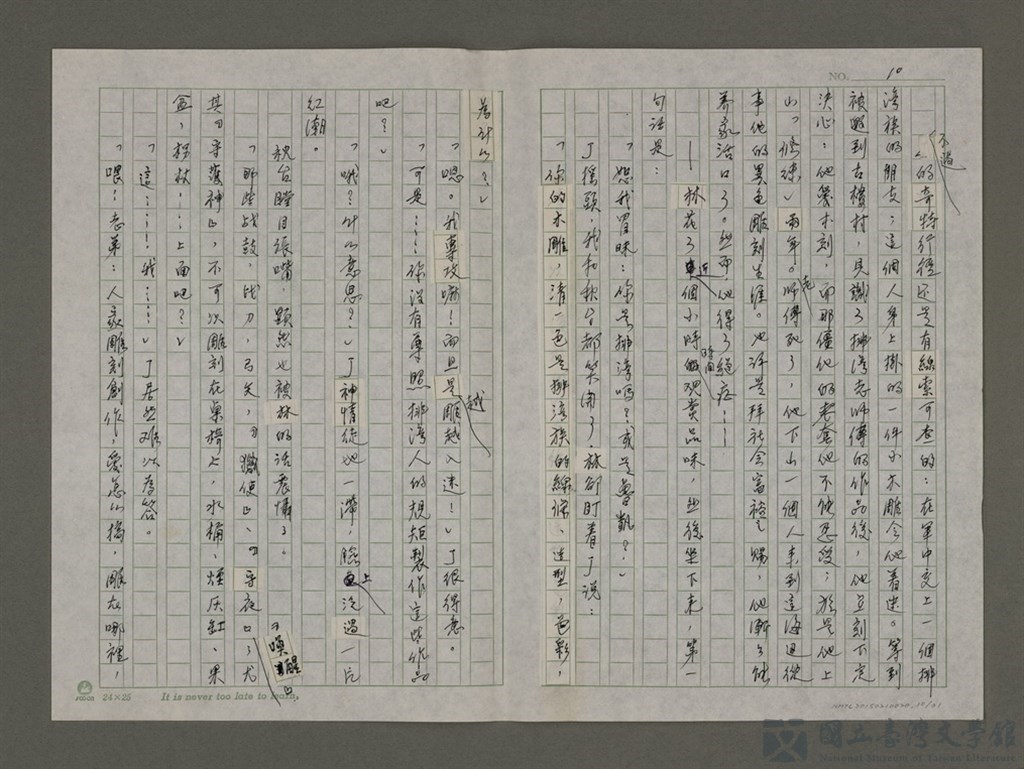 NO. 10
不過
的奇特行徑還是有線索可查的：在軍中交上一個排
灣族的朋友；這個人身上掛的一件小木雕令他着迷。等到
被邀到古樓村，見識了排灣老師傅的作品後，他立刻下定
決心：他要木刻，而那僅他的老爸他不能忍受；於是他上
山「修練」兩年。師傅死了，他下山一個人來到這海邊從
事他的異色雕刻生涯。也許是拜社會富裕之賜，他漸漸能
養家活口了。然而他得了絕症……
——林花了近個小時時間觀賞品味，然後坐下來，第一
句話是：
「恕我冒昧：你是排灣嗎？或是魯凱？」
丁搖頭，我和秋台都笑開了。林卻盯着丁說：
「你的木雕，清一色是排灣族的線條、造型，色彩，
為什么？」
「嗯。我專攻嘛！而且是雕越入迷！」丁很得意。
越
「可是……你沒有尊照排灣人的規矩製作這些作品
吧？」
「哦？什么意思？」丁神情從他一滯，臉上泛過一片
紅潮。
秋台瞠目張嘴，顯然也被林的話震懾了。
「那些战鼓，战刀，弓矢，『獵使』、『守夜』，尤
喚醒
其『守護神』，不可以雕刻在桌椅上，水桶、煙灰缸、果
盒，拐杖……上面吧？」
「這……！我……」丁居然難以為答。
「喂！老弟：人家雕刻創作！愛怎么搞，雕在哪裡，
24×25
It is never too late to learn.
國立臺灣文學館
National Museum of Taiwan Literature